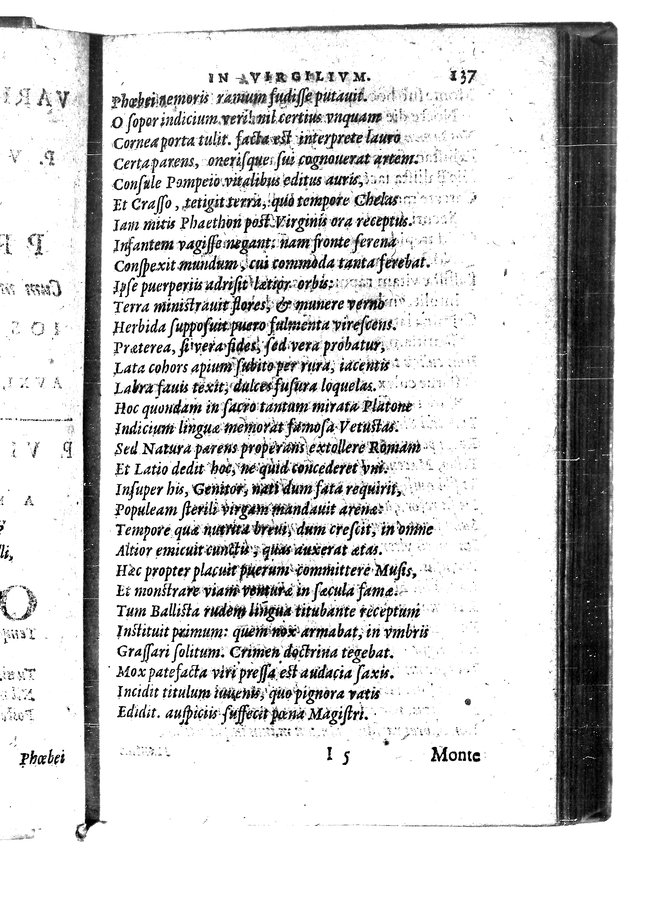 IN VIRGILIVM. 137
Phœbei nemoris ramum fudiſſe putauit.
O ſopor indicium veri! nil certius vnquam
Cornea porta tulit. facta eſt interprete lauro
Certa parens, oneriſque ſui cognouerat artem.
Conſule Pompeio vitalibus editus auris,
Et Craſſo, tetigit terra, quo tempore Chelas
Iam mitis Phaethon poſt Virginis ora receptus.
Infantem vagiſſe negant: nam fronte ſerena
Conſpexit mundum, cui commoda tanta ferebat.
Ipſe puerperiis adriſit lætior orbis:
Terra miniſtrauit flores, & munere verno
Herbida ſuppoſuit puero fulmenta vireſcens.
Præterea, ſi vera fides, ſed vera probatur,
Lata cohors apium ſubito per rura, iacentis
Labra fauis texit, dulces fuſura loquelas.
Hoc quondam in ſacro tantum mirata Platone
Indicium linguæ memorat famoſa Vetuſtas.
Sed Natura parens properans extollere Romam
Et Latio dedit hoc, ne quid concederet vni.
Inſuper his, Genitor, nati dum fata requirit,
Populeam ſterili virgam mandauit arenæ:
Tempore quæ nutrita breui, dum creſcit, in omne
Altior emicuit cunctis, quas auxerat ætas.
Hæc propter placuit puerum committere Muſis,
Et monſtrare viam venturæ in ſæcula famæ.
Tum Balliſta rudem lingua titubante receptum
Inſtituit primum: quem nox armabat, in vmbris
Graſſari ſolitum. Crimen doctrina tegebat.
Mox patefacta viri preſſa eſt audacia ſaxis.
Incidit titulum iuuenis, quo pignora vatis
Edidit. auſpiciis ſuffecit pœna Magiſtri.
I 5 Monte
Phœbei